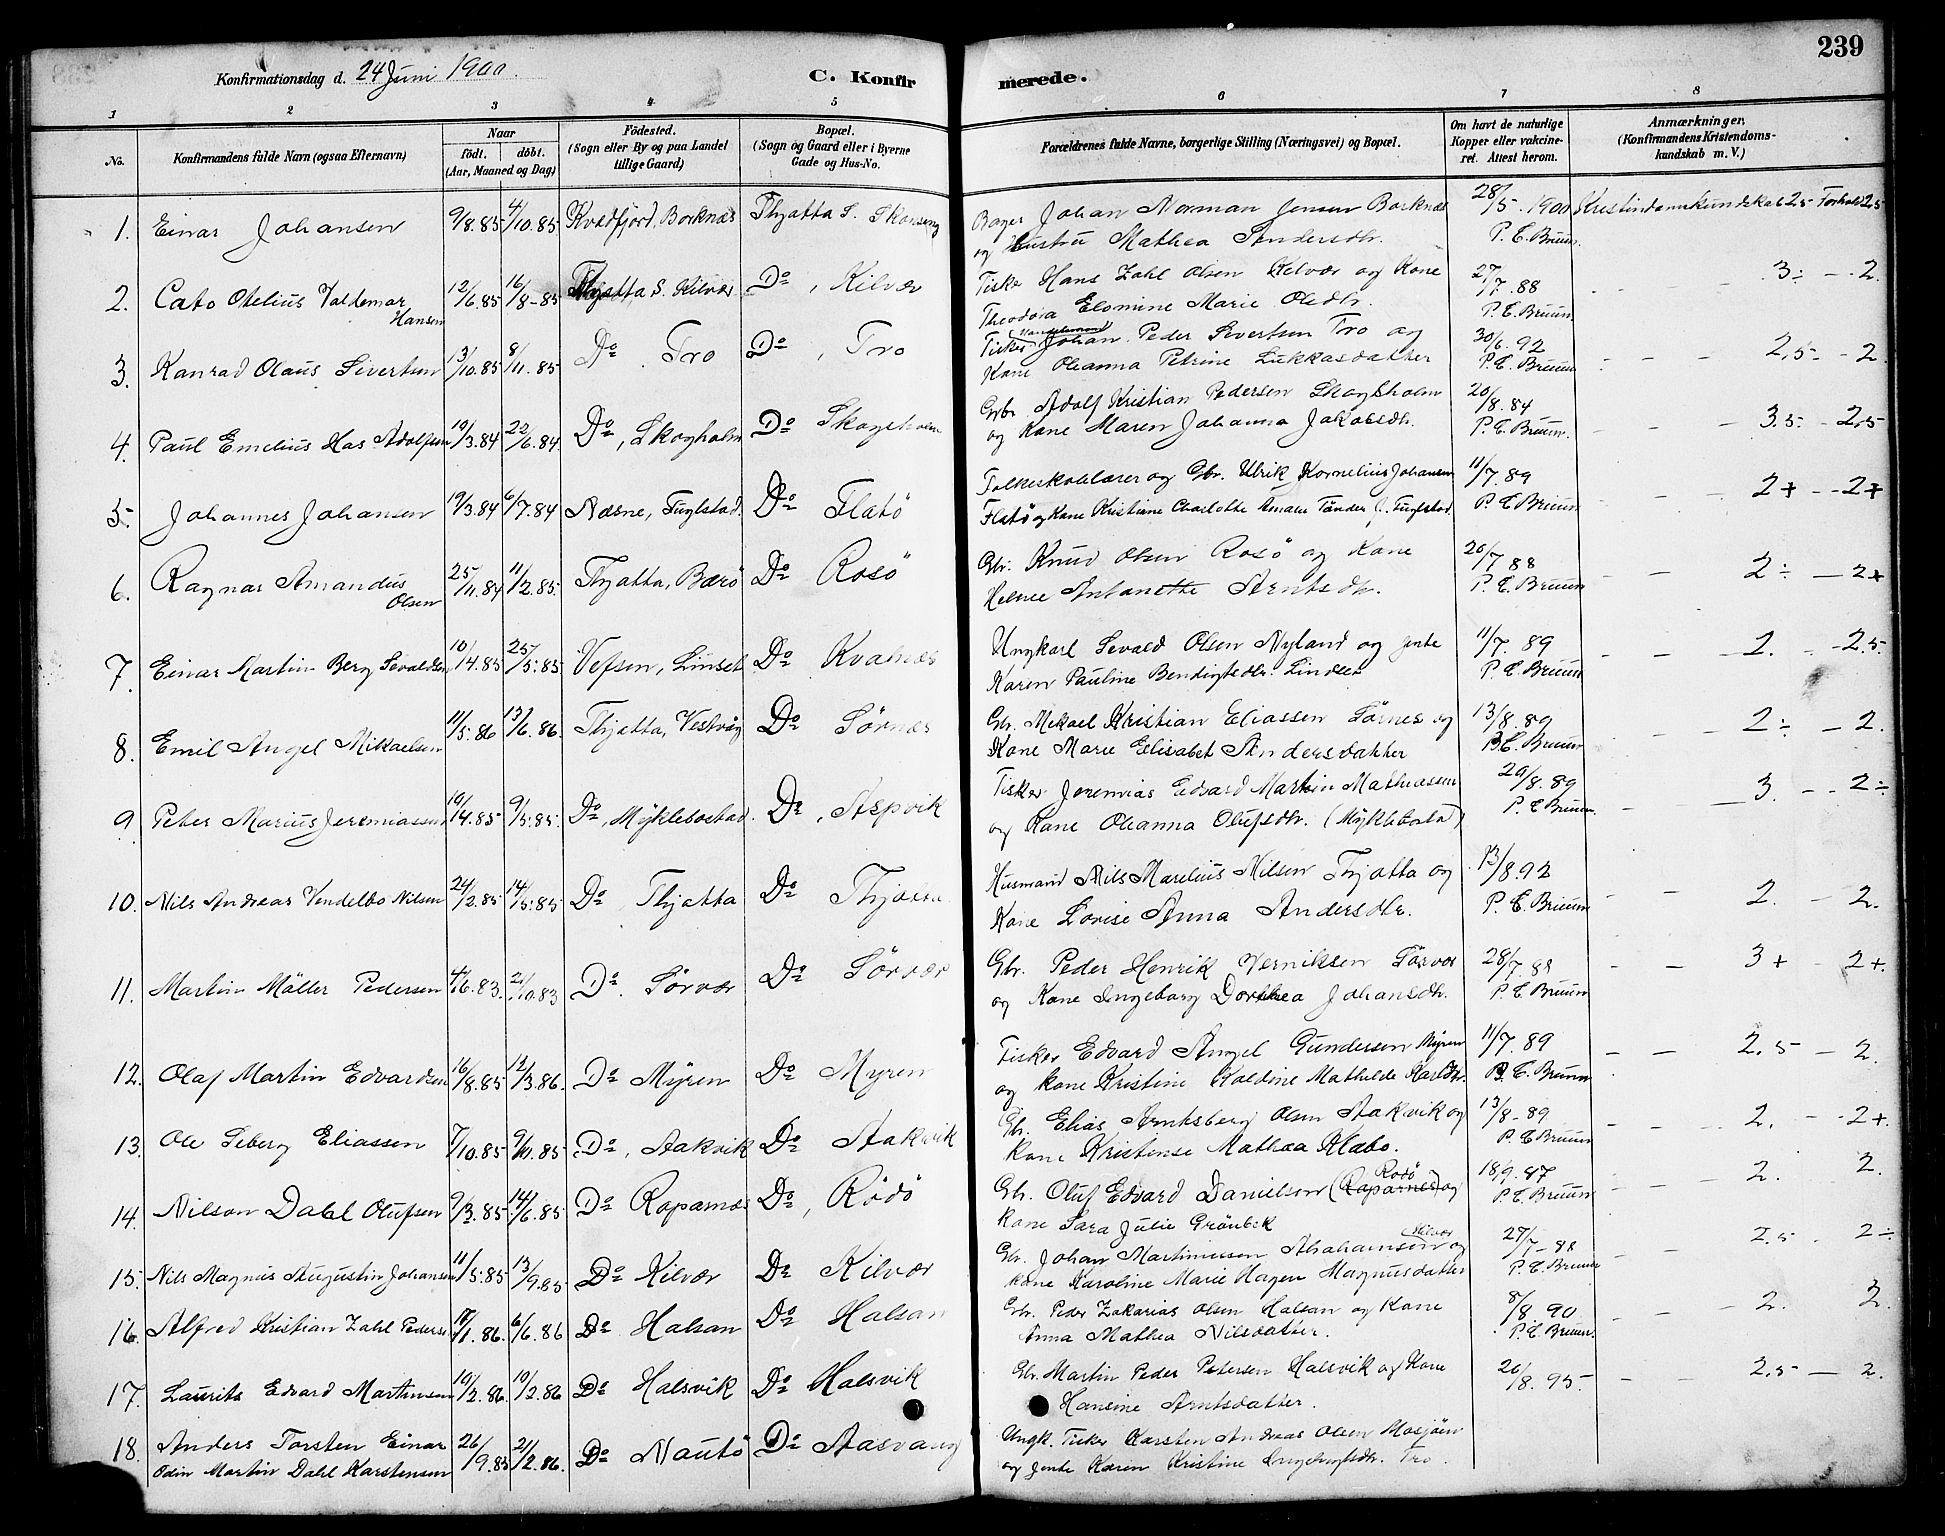 239
Konfirmationsdag d. 24 Juni 1900.
C. Konfirmerede.
1 2 3 4 5 6 7 8
No.
Konfirmandens fulde Navn (ogsaa Efternavn)
Naar
födt. döbt.
(Aar, Maaned og Dag)
Födested.
(Sogn eller By og paa Landet
tillige Gaard)
Bopæl.
(Sogn og Gaard eller i Byerne
Gade og Hus-No.
Forældrenes fulde Navne, borgerlige Stilling (Næringsvei) og Bopæl.
Om havt de naturlige
Kopper eller vakcine-
ret. Attest herom.
Anmærkninger.
(Konfirmandens Kristendoms-
kundskab m. V.)
1. Einar Johansen 9/8.85 4/10.85 Kvædfjord, Borknæs Thjøtta S. Johan Norman Jensen Borknæs 28/5.1900 Kristendomskundskab 2,5 Forhold 2,5
og Hustru Mathea Andersdtr. P. C. Bruun.
2. Cato Otelius Valdemar Hansen 12/6.85 16/8-85 Thjøtta S. Kilvær Do, Kilvær Fisker Hans Zahl Olsen Kilvær og Kone 27/7.88 3÷ - 2.
Theodora Elomine Marie Oledtr. P. C. Bruun.
3. Konrad Olaus Sivertsen 13/10.85 8/11.85 Do Tro Do, Tro Fisker Johan Peder Sivertsen Tro og 30/6.92 2,5 - 2.
Kone Oleanna Petrine Lukkasdatter P. C. Bruun
4. Paul Emelius Has Adolfsen 10/3.84 22/6.84 Do, Skogholm Do Skogsholm Gbr. Adolf Kristian Pedersen Skogsholm 20/8.84 3.5 - 2,5
og Kone Maren Johanna Jakobsdtr. P. C. Bruun.
5. Johannes Johansen 19/3.84 6/7.84 Næsne, Fuglstad. Do Flatö Folkeskolelærer og Gbr. Ulrik Kornelius Johansen 11/7.89 2+ - 2+
Flatö og Kone Kristiane Charlotte Amalie Tönder f. Fuglstad P. C. Bruun
6. Ragnar Amandus Olsen 25/11.84 11/2.85. Thjøtta, Bærö Do Rosö Gbr. Knud Olsen Rosö og Kone 20/7 88 2÷ - 2+
Antonette Arntsdtr. P. C. Bruun
7. Einar Martin Berg Sevaldsen 10/4.85 25/5.85 Vefsen, Linset Do Kvalnæs Ungkarl Sevald Olsen Nyland og Jente 11/7.89 2. - 2,5.
Karen Pauline Bendigtsdtr. Lindset P. C. Bruun
8. Emil Angel Mikaelsen 11/5.86 13/6.86. Thjøtta, Vestvåg Do Sörnæs Gbr. Mikael Kristian Eliassen Sörnes og 13/8.89 2÷ - 2.
Kone Marie Elisabet Andersdatter P. C. Bruun
9. Peter Marius Jeremiassen 10/4.85 9/5.85. Do, Myklebostad. Do, Aspvik Fisker Jeremias Edvard Martin Mathiassen 29/8.89 3. - 2÷
og Kone Oleanna Olufsdtr. (Myklebostad) P. C. Bruun.
10. Nils Andreas Vendelbo Nilsen 24/2.85 14/5.85 Do Thjøtta Do Thjøtta Husmand Nils Marelius Nilsen Thjøtta og 13/8.92 2. - 2.
Kone Lovise Anna Andersdtr. P. C. Bruun
11. Martin Möller Pedersen 4/6.83. 21/10.83 Do Sörvær Do Sörvær Gbr. Peder Henrik Verniksen Sörvær 28/7.88 3+ - 2+.
og Kone Ingeborg Dorthea Johansdtr. P. C. Bruun
12. Olaf Martin Edvardsen 16/8.85 12/3.86. Do Myren Do Myren Fisker Edvard Angel Gundersen Myren 11/7.89 2,5 - 2.
og Kone Kristine Kaldine Mathilde Karldtr. P. C. Bruun
13. Ole Seberg Eliassen 7/10.85 9/11.85 Do, Aakvik Do Aakvik Gbr. Elias Arntsberg Olsen Aakvik og 13/8-89 2. - 2+.
Kone Kristense Mathea Klabo. P. C. Bruun
14. Nilson Dahl Olufsen 9/3.85 14/6.85 Do Rapamæs Do, Rödö Gbr. Oluf Edvard Danielsen (Raparnes) Rödö og 18/9.87 2. 2.
Kone Sara Julie Grönbek P. C. Bruun
15. Nils Magnus Augustin Johansen 11/5.85 13/9.85 Do Kilvær Do Kilvær Gbr. Johan Martinussen Abrahamsen Kilvær og 27/7-88 2.5 2÷
Kone Karoline Marie Hagen Magnusdatter P. C. Bruun
16. Alfred Kristian Zahl Peders 6/6.86 Do Halsan Do Halsan Gbr. Peder Zakarias Olsen Halsan og Kone 8/8 90 2. 2.
Anna Mathea Nilsdatter. P. C. Bruun.
17. Laurits Edvard Martinsen 10/2.86. 19/2.86 Do Halsvik Do Halsvik Gbr. Martin Peder Petersen Halsvik og Kone 20/8.95. 2,5 - 2.
Hansine Arntsdatter.
18. Anders Torsten Einar 26/9.85 21/2.86. Do Nautö Do Aasvang Ungk. Fisker Karsten Andreas Olsen Mosjöen
Odin Martin Dahl Karstensen og Jente Karen Kristine Tro.